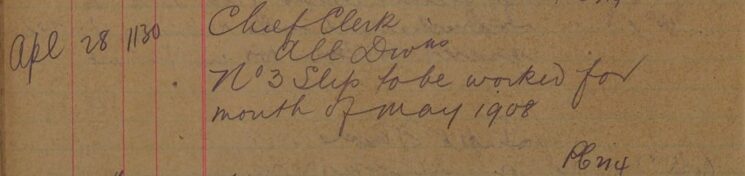 Apl 28 1130 Chief Clerk
All Divns
No 3 Slip to be worked for
month of May 1908